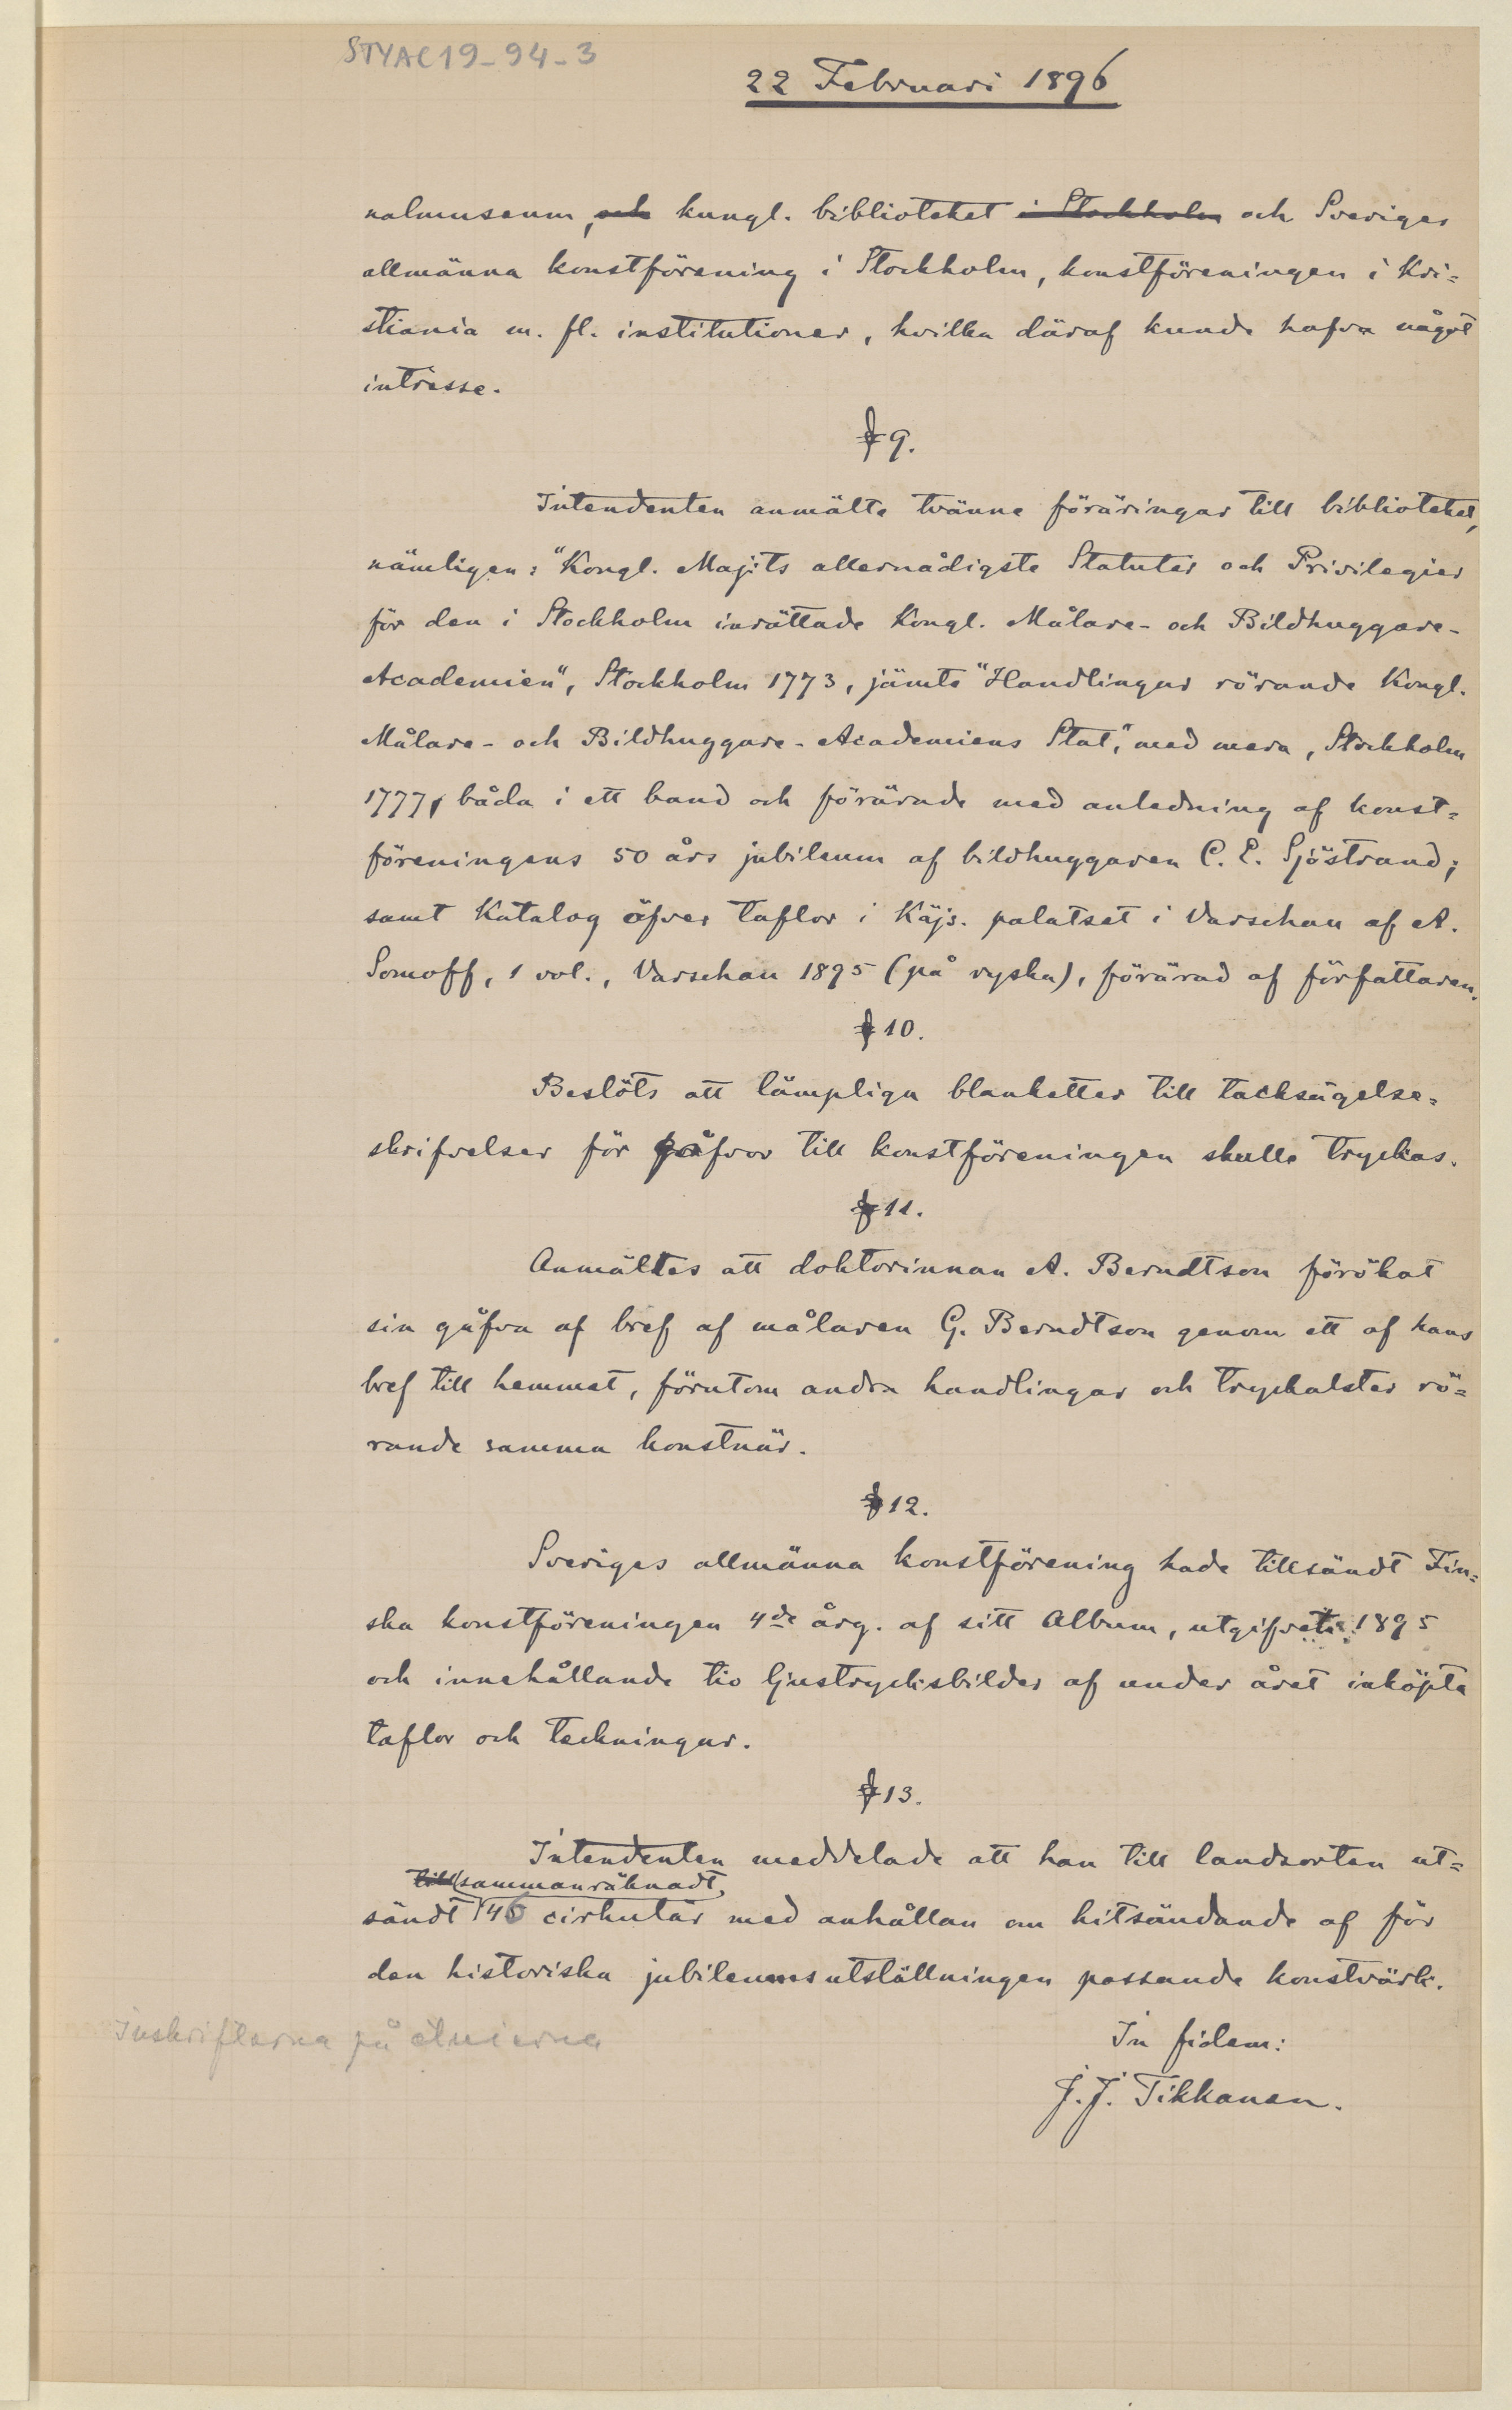 STYAC19-94-3
22 Februari 1896
nalmuseum, och kungl. biblioteket i Stockholm och Sveriges
allmänna konstförening i Stockholm, konstföreningen i Kri=
stiania m. fl. institutioner, hvilka däraf kunde hafva något
intresse.
§ 9.
Intendenten anmälte tvänne föräringar till biblioteket,
nämligen: "Kongl. Maj:ts allernådigste Statuter och Privilegier
för den i Stockholm inrättade Kongl. Målare- och Bildhuggare-
Academien", Stockholm 1773, jämte "Handlingar rörande Kongl.
Målare- och Bildhuggare-Academiens Stat," med mera, Stockholm
1777, båda i ett band och förärade med anledning af konst=
föreningens 50 års jubileum af bildhuggaren C. E. Sjöstrand;
samt Katalog öfver taflor i Käjs. palatset i Varschau af A.
Somoff, 1 vol., Varschau 1895 (på ryska), förärad af författaren.
§ 10.
Beslöts att lämpliga blanketter till tacksägelse=
skrifvelser för gåfvor till konstföreningen skulle tryckas.
§ 11.
Anmältes att doktorinnan A. Berndtson förökat
sin gåfva af bref af målaren G. Berndtson genom ett af hans
bref till hemmet, förutom andra handlingar och tryckalster rö=
rande samma konstnär.
§ 12.
Sveriges allmänna konstförening hade tillsändt Fin=
ska konstföreningen 4de årg. af sitt Album, utgifvet 1895
och innehållande tio ljustrycksbilder af under året inköpta
taflor och teckningar.
§ 13.
Intendenten meddelade att han till landsorten ut=
till sammanräknadt
sändt 146 cirkulär med anhållan om hitsändande af för
den historiska jubileumsutställningen passande konstvärk.
Inskrifterna på etuierna
In fidem:
J. J. Tikkanen.